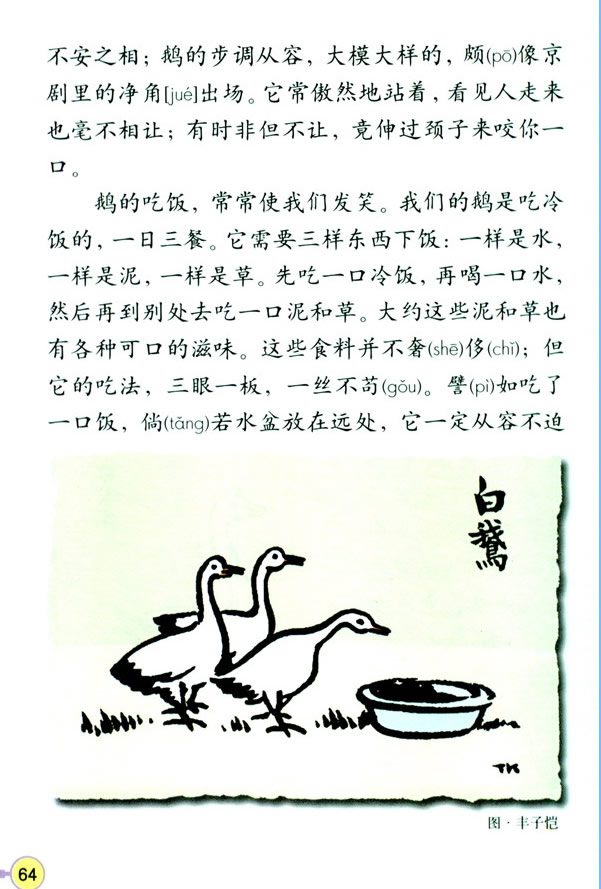 不安之相；鹅的步调从容，大模大样的，颇(pō)像京
剧里的净角[jué]出场。它常傲然地站着，看见人走来
也毫不相让；有时非但不让，竟伸过颈子来咬你一
口。
鹅的吃饭，常常使我们发笑。我们的鹅是吃冷
饭的，一日三餐。它需要三样东西下饭：一样是水，
一样是泥，一样是草。先吃一口冷饭，再喝一口水，
然后再到别处去吃一口泥和草。大约这些泥和草也
有各种可口的滋味。这些食料并不奢(shē)侈(chǐ)；但
它的吃法，三眼一板，一丝不苟(gǒu)。譬(pì)如吃了
一口饭，倘(tǎng)若水盆放在远处，它一定从容不迫
白鵞
TK
图·丰子恺
64